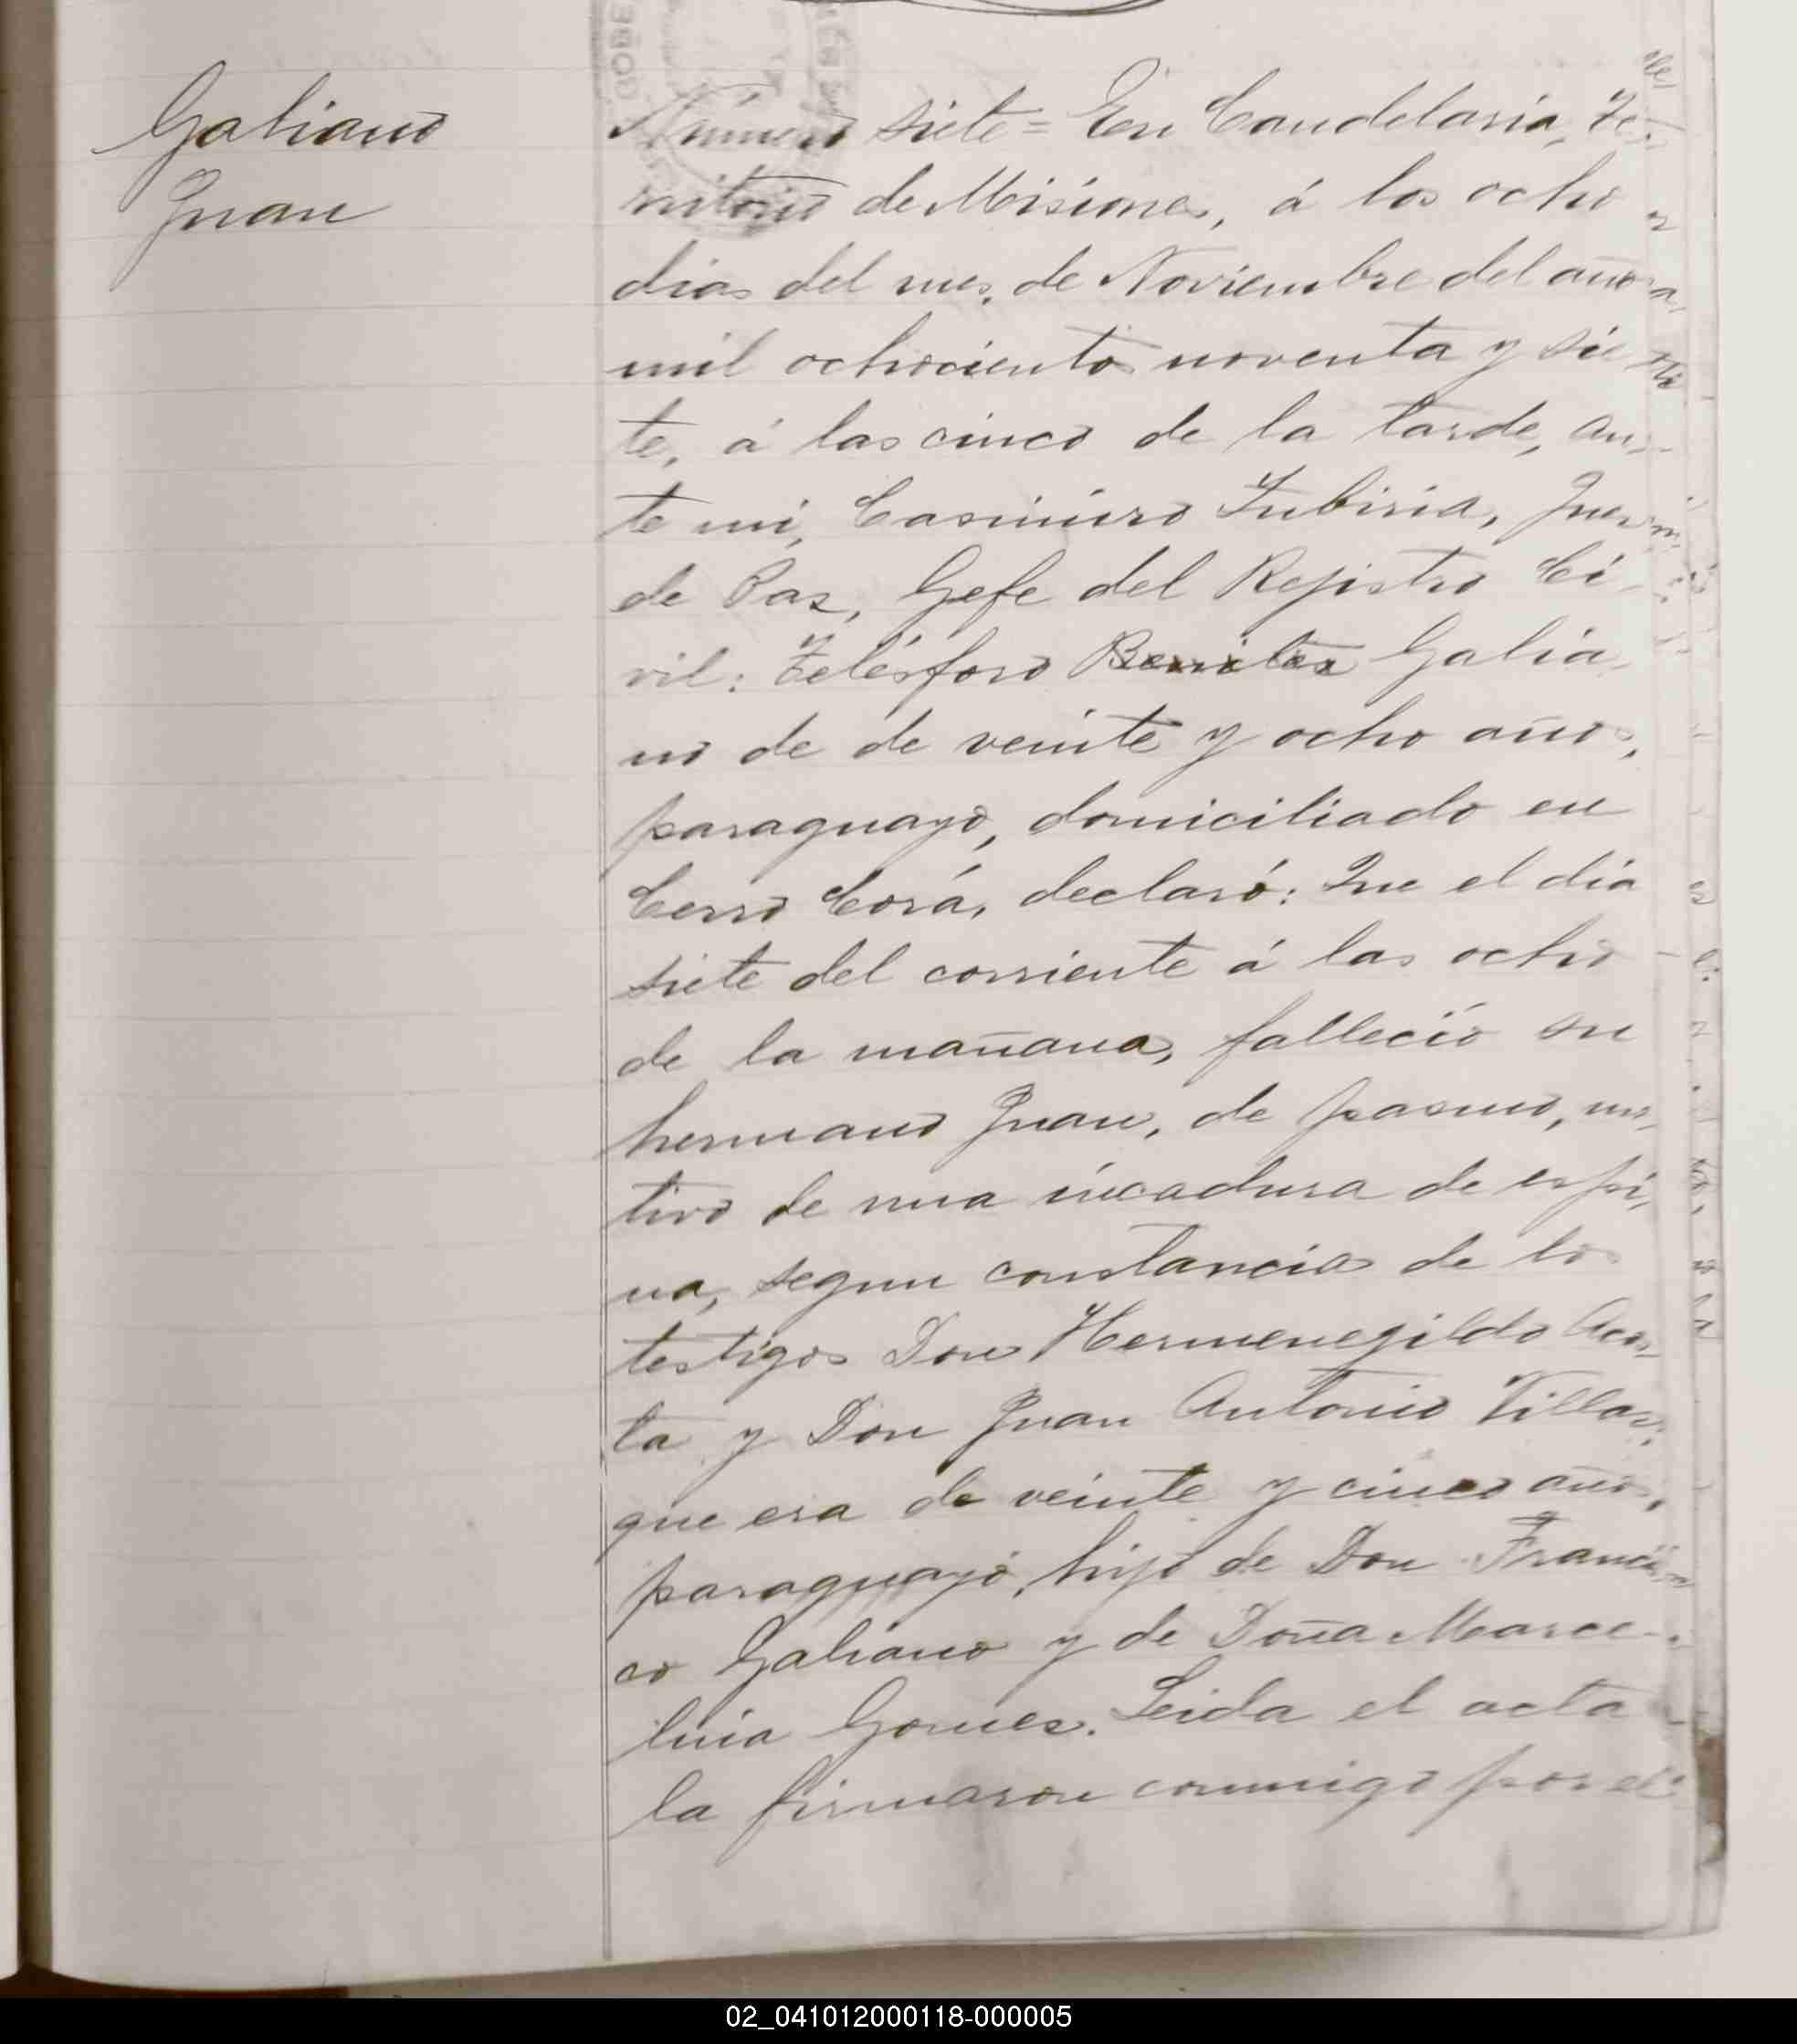 Galiano
Juan
Número siete = En Candelaria, Te-
rritorio de Misiones, á los ocho
dias del mes de Noviembre del año
mil ochocientos noventa y sie
te, á las cinco de la tarde, an-
te mi, Casimiro Yubiria, Juez
de Paz, Gefe del Registro Ci-
vil: Telésforo Galia-
no de de veinte y ocho años,
paraguayo, domiciliado en
Cerro Corá, declaró: Que el dia
siete del corriente á las ocho
de la mañana, falleció su
hermano Juan, de pasmo, mo-
tivo de una incadura de espi-
na, segun constancia de los
testigos Don Hermenegildo Acos-
ta y Don Juan Antonio Villar,
que era de veinte y cinco años,
paraguayo, hijo de Don Francis-
co Galiano y de Doña Marce-
lina Gomes. Leida el acta
la firmaron conmigo por el
02_041012000118-000005